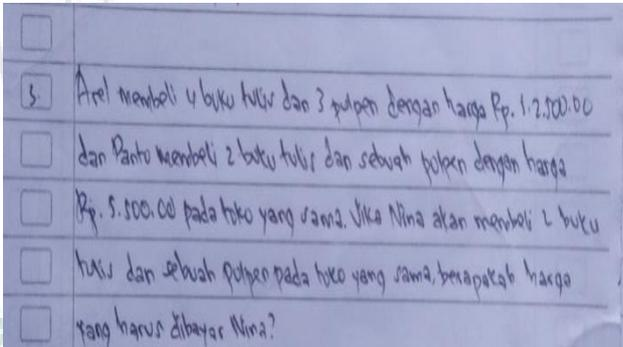 3. Arel membeli 4 buku tulis dan 3 pulpen dengan harga Rp. 12.500.00
dan Panto membeli 2 buku tulis dan sebuah pulpen dengan harga
Rp. 5.500.00 pada toko yang sama. Jika Nina akan membeli 2 buku
tulis dan sebuah pulpen pada toko yang sama, berapakah harga
yang harus dibayar Nina?